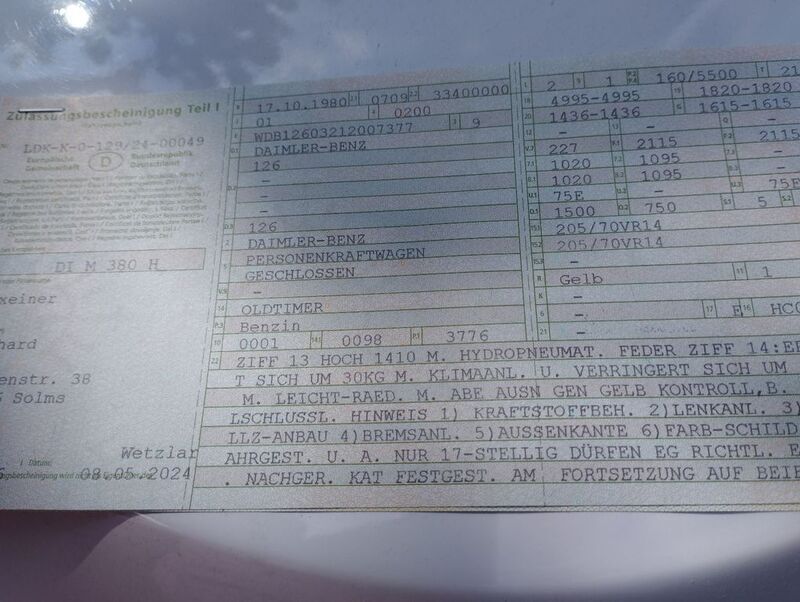 Zulassungsbescheinigung Teil I
LDK-K-0-129/24-00049
Europäische Gemeinschaft
D
Bundesrepublik Deutschland
DI M 380 H
xeiner
hard
enstr. 38
Solms
Wetzlar
Datum:
08.05.2024
17.10.1980 2.1 0709 2.2 33400000
01 4 0200
WDB12603212007377 3 9
D.1 DAIMLER-BENZ
126
–
–
D.3 126
2 DAIMLER-BENZ
5 PERSONENKRAFTWAGEN
GESCHLOSSEN
V.9 –
14 OLDTIMER
P.3 Benzin
10 0001 14.1 0098 P.1 3776
L 2 9 1 P.2 P.4 160/5500 T 21
18 4995-4995 19 1820-1820
20 1436-1436 G 1615-1615
12 – 13 – Q –
V.7 227 F.1 2115 F.2 2115
7.1 1020 7.2 1095
8.1 1020 8.2 1095
U.1 75E U.2 – U.3 75E
O.1 1500 O.2 750 S.1 5 S.2
15.1 205/70VR14
15.2 205/70VR14
15.3 –
R Gelb 11 1
K –
6 – 17 E 16 HC0
21 –
22 ZIFF 13 HOCH 1410 M. HYDROPNEUMAT. FEDER ZIFF 14:ER
T SICH UM 30KG M. KLIMAANL. U. VERRINGERT SICH UM
M. LEICHT-RAED. M. ABE AUSN GEN GELB KONTROLL,B.
LSCHLUSSL. HINWEIS 1) KRAFTSTOFFBEH. 2)LENKANL. 3)
LLZ-ANBAU 4)BREMSANL. 5)AUSSENKANTE 6)FARB-SCHILD
AHRGEST. U. A. NUR 17-STELLIG DÜRFEN EG RICHTL. E
. NACHGER. KAT FESTGEST. AM FORTSETZUNG AUF BEIB